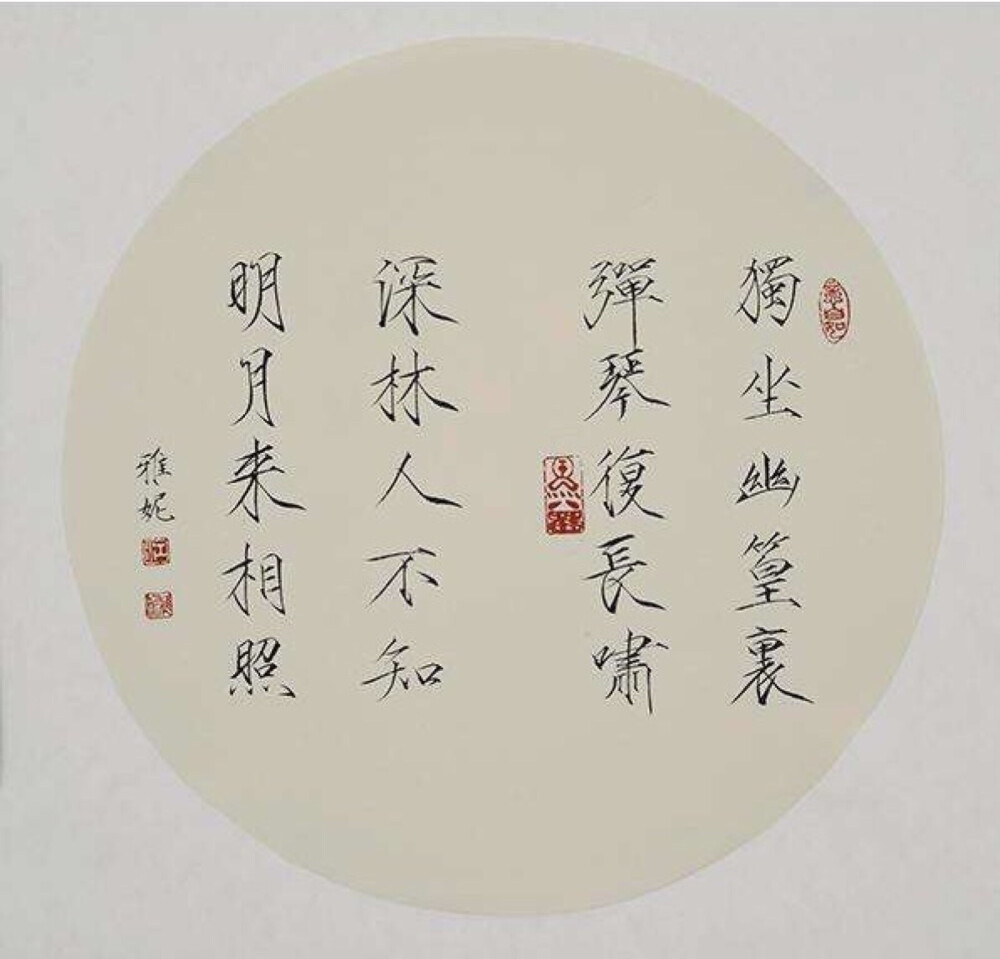 獨坐幽篁裏
彈琴復長嘯
深林人不知
明月来相照
雅妮